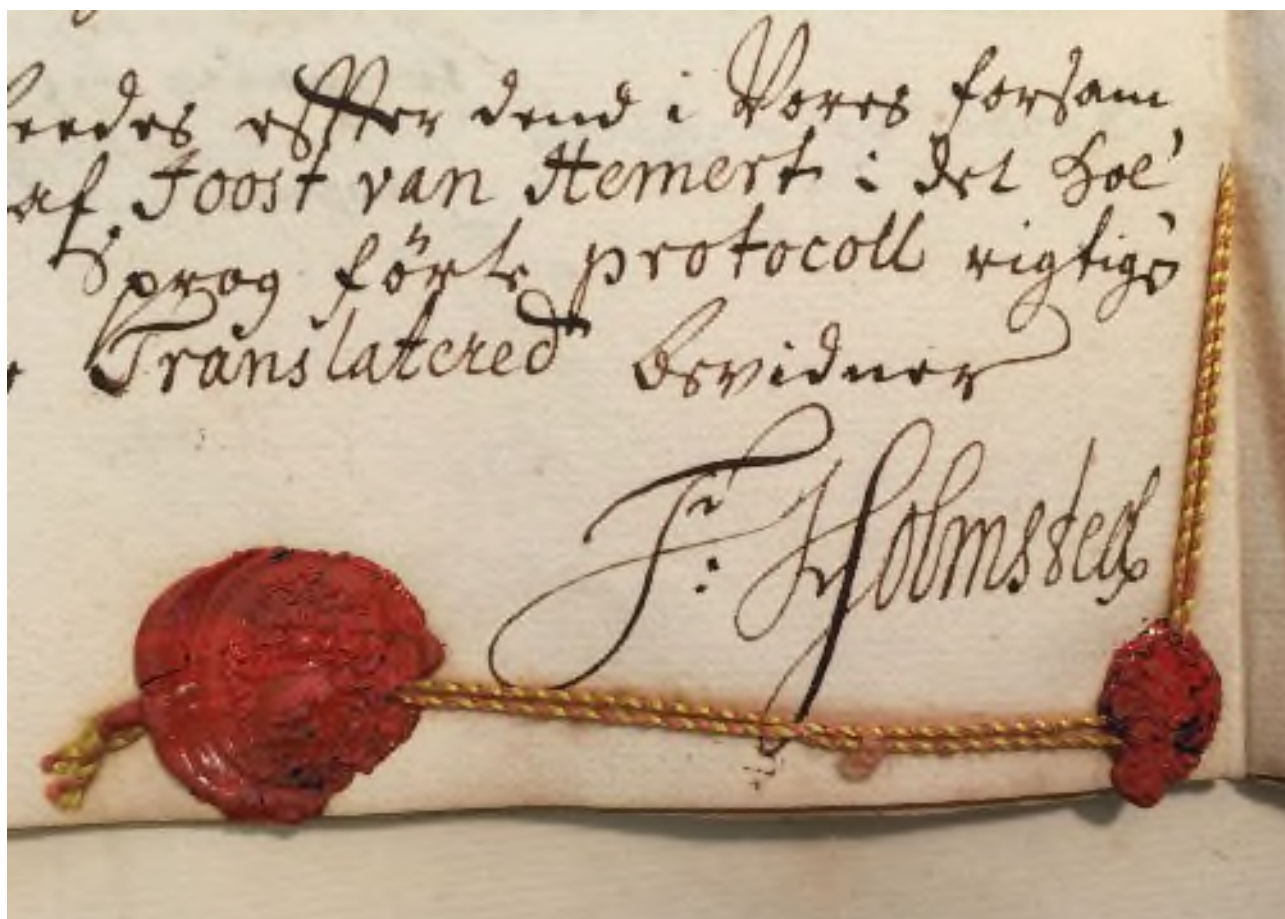 eedes effter dend i Vores forsam
af Joost van Hemert i det Hol
Sprog førte protocoll rigtige
Translatered bevidner
F: Holmsted